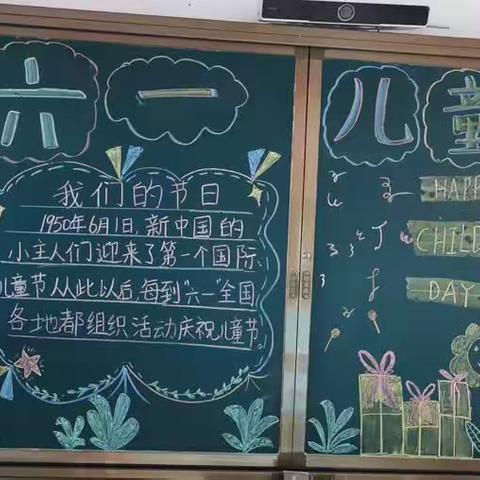 六一儿童
我们的节日
1950年6月1日,新中国的
小主人们迎来了第一个国际
儿童节从此以后,每到"六一"全国
各地都组织活动庆祝儿童节。
HAPP
CHILD
DAY